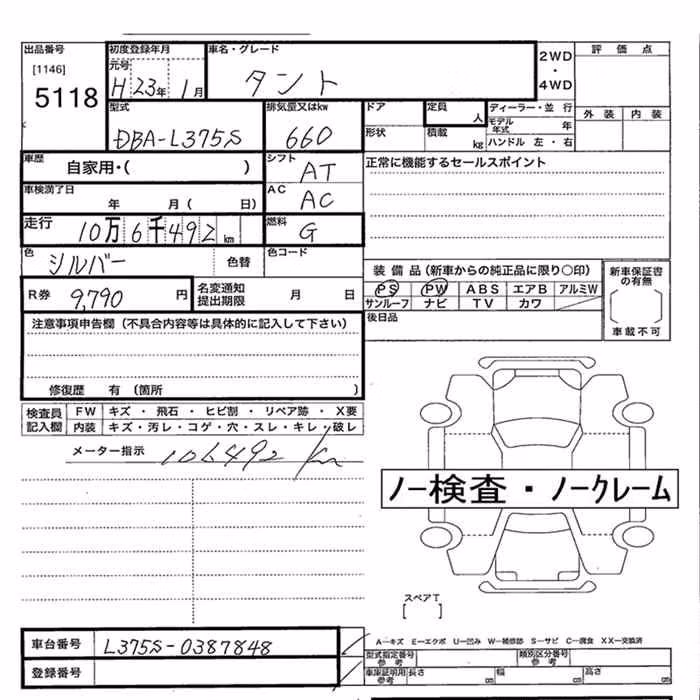 出品番号 初度登録年月 車名・グレード 2WD・4WD 評価点
[1146] 元号
5118 H 23年 1月 タント
外装 内装
型式 排気量又はkw ドア 定員 人 ディーラー・並行
DBA-L375S 660 モデル年式 年
形状 積載 kg ハンドル 左・右
車歴 シフト 正常に機能するセールスポイント
自家用・( ) AT
車検満了日 AC
年 月( 日) AC
走行 10万6千492km 燃料 G
色 シルバー 色替 色コード
装備品(新車からの純正品に限り○印) 新車保証書の有無
R券 9,790円 名変通知提出期限 月 日 PS PW ABS エアB アルミW
サンルーフ ナビ TV カワ
車載不可
注意事項申告欄(不具合内容等は具体的に記入して下さい) 後日品
修復歴 有(箇所 )
検査員記入欄 FW キズ・飛石・ヒビ割・リペア跡・X要
内装 キズ・汚レ・コゲ・穴・スレ・キレ・破レ
メーター指示 106492 km
ノー検査・ノークレーム
スペアT
[ ]
車台番号 L375S-0387848 A—キズ E—エクボ U—凹み W—補修跡 S—サビ C—腐食 XX—交換済
型式指定番号参考 類別区分番号参考
登録番号 車庫証明用参考 長さ cm 幅 cm 高さ cm